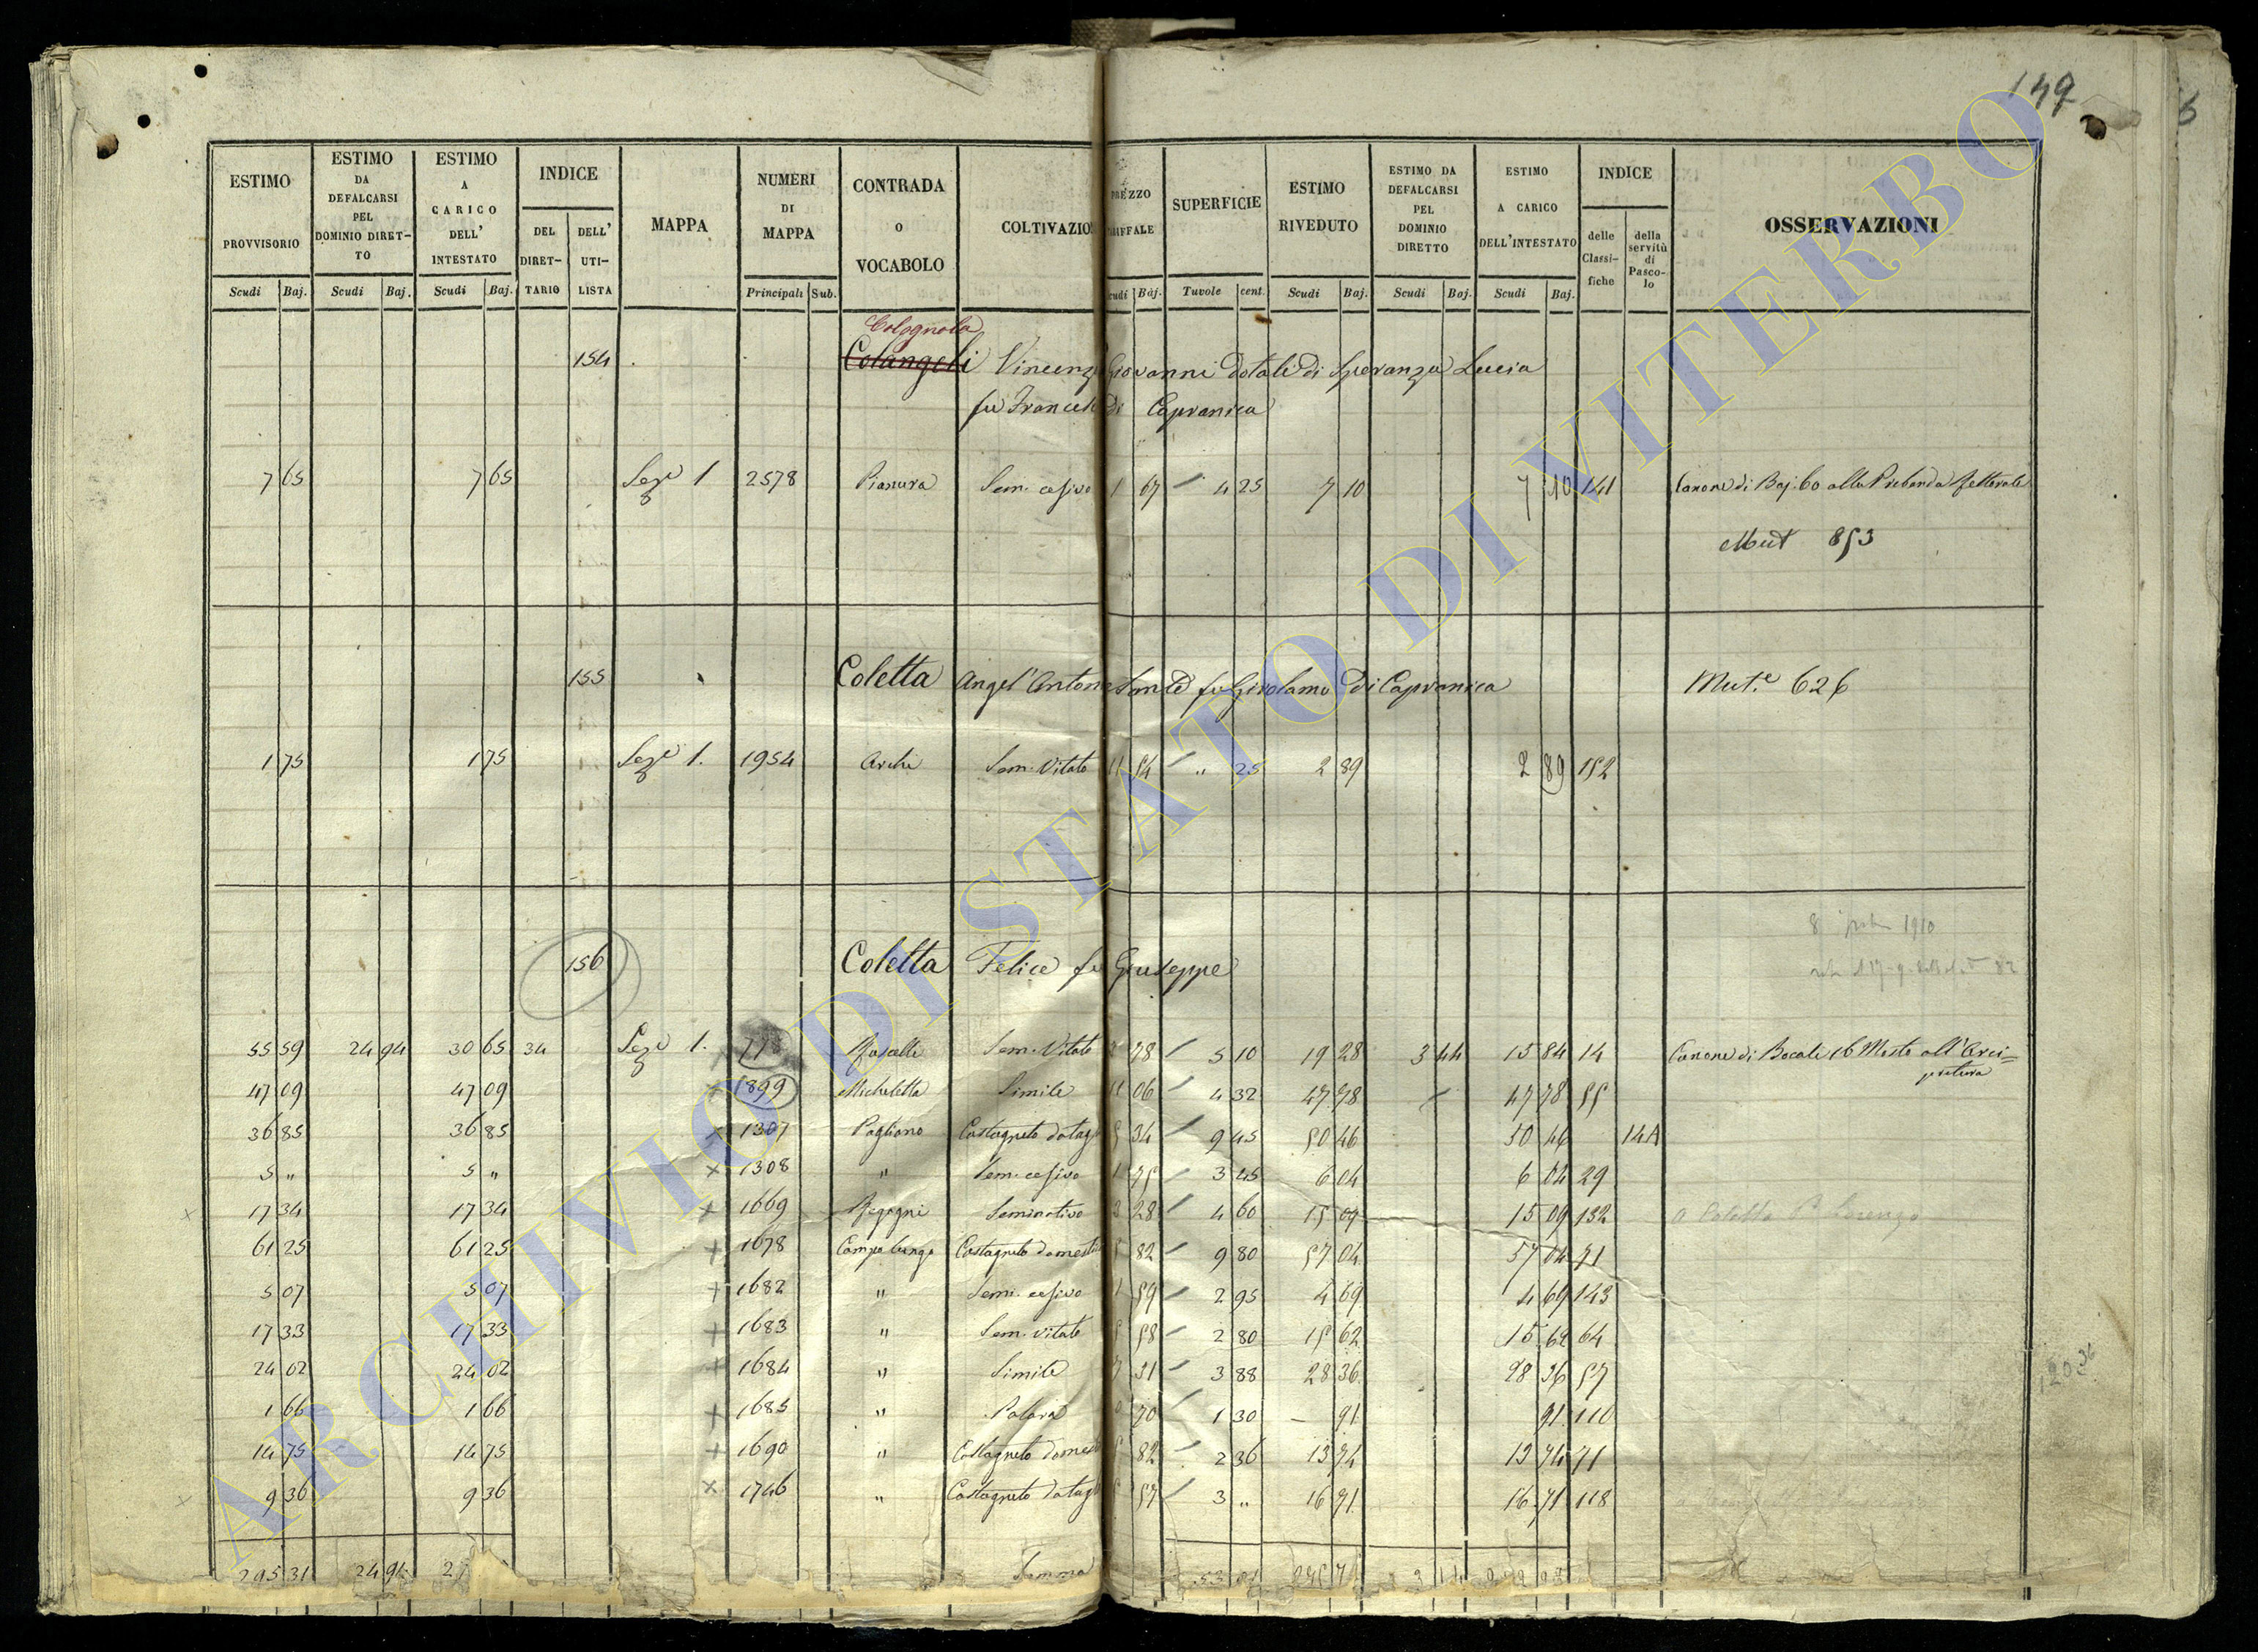 149
ESTIMO PROVVISORIO Scudi Baj.
ESTIMO DA DEFALCARSI PEL DOMINIO DIRETTO Scudi Baj.
ESTIMO A CARICO DELL' INTESTATO Scudi Baj.
INDICE DEL DIRETTARIO DELL' UTILISTA
MAPPA
NUMERI DI MAPPA Principali Sub.
CONTRADA O VOCABOLO
COLTIVAZIO
PREZZO Baj.
SUPERFICIE Tavole cent.
ESTIMO RIVEDUTO Scudi Baj.
ESTIMO DA DEFALCARSI PEL DOMINIO DIRETTO Scudi Baj.
ESTIMO A CARICO DELL'INTESTATO Scudi Baj.
INDICE delle Classifiche della servitù di Pascolo
OSSERVAZIONI
Colognola
154 Colangeli Vincenz Giovanni dotale di Speranza Lucia
fu Francesc di Capranica
7 65 7 65 Sezе 1 2578 Pianura Sem. cesivo 1 67 4 25 7 10 7 10 141 Canone di Baj. 60 alla Prebenda
Mut 853
155 Coletta Angel'Anton Sante fu Girolamo di Capranica Mut.e 626
1 75 1 75 Seze 1. 1954 Archi Sem. Vitato 11 54 " 25 2 89 2 89 152
8 1910
156 Coletta Felice fu Giuseppe
55 59 24 94 30 65 34 Seze 1. Sem. Vitato 78 5 10 19 28 3 44 15 84 14 Canone di Bocali 16 Mosto all'Arci=
pretura
47 09 47 09 1899 Micheletta Simile 11 06 4 32 47 78 47 78 55
36 85 36 85 + 1307 Pogliano Castagneto datagl 5 34 9 45 50 46 50 46 14A
5 " 5 " × 1308 " Sem. cesivo 1 75 3 45 6 04 6 04 29
17 34 17 34 + 1669 Seminativo 3 28 4 60 15 09 15 09 132 a Coletta Lorenzo
61 25 61 25 + 1678 Campo lungo Castagneto domesti 5 82 9 80 57 04 57 04 71
5 07 5 07 + 1682 " Sem. cesivo 1 59 2 95 4 69 4 69 143
17 33 17 33 + 1683 " Sem. vitato 5 58 2 80 15 62 15 62 64
24 02 24 02 + 1684 " Simile 7 31 3 88 28 36 28 36 57
1 66 1 66 + 1685 " 70 1 30 — 91 91 110
14 75 14 75 + 1690 " Castagneto domes 5 82 2 36 13 74 13 74 71
9 36 9 36 × 1746 " Castagneto datagl 5 57 3 " 16 71 16 71 118
295 31 24 94 2 Somma 53 01
ARCHIVIO DI STATO DI VITERBO